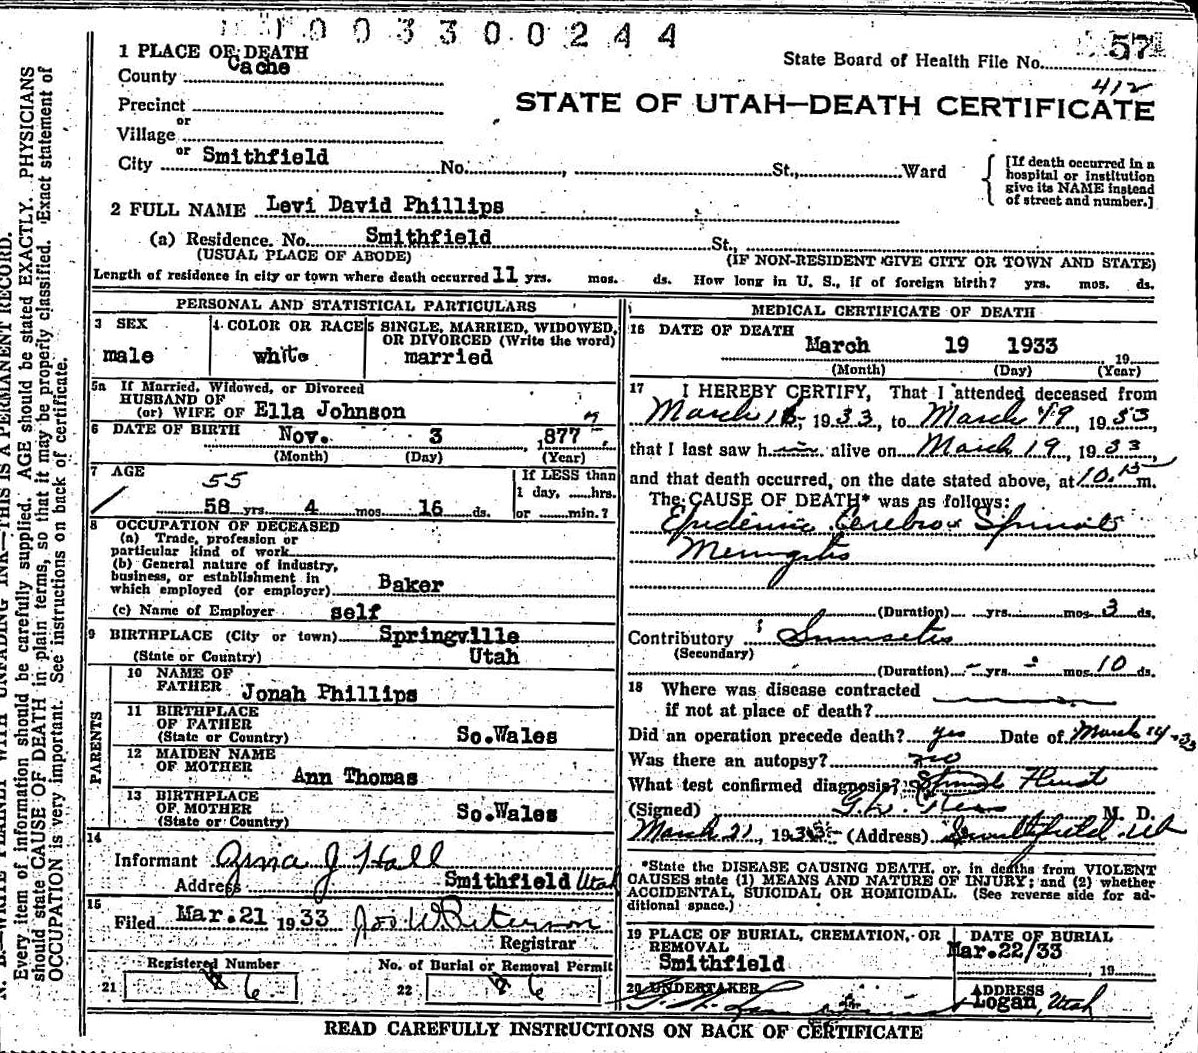 003300244
1 PLACE OF DEATH
County Cache
State Board of Health File No. 57
412
Precinct
or
Village
STATE OF UTAH—DEATH CERTIFICATE
City or Smithfield No. , St., Ward
[If death occurred in a
hospital or institution
give its NAME instead
of street and number.]
2 FULL NAME Levi David Phillips
(a) Residence. No. Smithfield St.,
(USUAL PLACE OF ABODE) (IF NON-RESIDENT GIVE CITY OR TOWN AND STATE)
Length of residence in city or town where death occurred 11 yrs. mos. ds. How long in U. S., if of foreign birth? yrs. mos. ds.
PERSONAL AND STATISTICAL PARTICULARS
3 SEX
male
4 COLOR OR RACE
white
5 SINGLE, MARRIED, WIDOWED,
OR DIVORCED (Write the word)
married
5a If Married, Widowed, or Divorced
HUSBAND OF
(or) WIFE OF Ella Johnson
6 DATE OF BIRTH Nov. 3 1877 7
(Month) (Day) (Year)
7 AGE 55
58 yrs. 4 mos. 16 ds.
If LESS than
1 day, hrs.
or min.?
8 OCCUPATION OF DECEASED
(a) Trade, profession or
particular kind of work
(b) General nature of industry,
business, or establishment in
which employed (or employer) Baker
(c) Name of Employer self
9 BIRTHPLACE (City or town) Springville
(State or Country) Utah
PARENTS
10 NAME OF
FATHER Jonah Phillips
11 BIRTHPLACE
OF FATHER
(State or Country) So.Wales
12 MAIDEN NAME
OF MOTHER
Ann Thomas
13 BIRTHPLACE
OF MOTHER
(State or Country) So.Wales
14
Informant J Hall
Address Smithfield Utah
15
Filed Mar.21 1933 Jos W. Peterson
Registrar
21 Registered Number
6
22 No. of Burial or Removal Permit
6
MEDICAL CERTIFICATE OF DEATH
16 DATE OF DEATH
March 19 1933 19
(Month) (Day) (Year)
17 I HEREBY CERTIFY, That I attended deceased from
March 16, 1933, to March 19 1933
that I last saw h im alive on March 19, 1933,
and that death occurred, on the date stated above, at 10.15 m.
The CAUSE OF DEATH* was as follows:
Epidemic Cerebro Spinal
Meningitis
(Duration) yrs. mos. 3 ds.
Contributory Sinusitis
(Secondary)
(Duration) - yrs. - mos. 10 ds.
18 Where was disease contracted
if not at place of death?
Did an operation precede death? yes Date of March 14-33
Was there an autopsy? no
What test confirmed diagnosis? Spinal Fluid
(Signed) G.L. Rees M. D.
March 21, 1933 (Address) Smithfield Ut
*State the DISEASE CAUSING DEATH, or, in deaths from VIOLENT
CAUSES state (1) MEANS AND NATURE OF INJURY; and (2) whether
ACCIDENTAL, SUICIDAL OR HOMICIDAL. (See reverse side for ad-
ditional space.)
19 PLACE OF BURIAL, CREMATION, OR
REMOVAL
Smithfield
DATE OF BURIAL
Mar.22/33
19
20 UNDERTAKER
ADDRESS
Logan, Utah
READ CAREFULLY INSTRUCTIONS ON BACK OF CERTIFICATE
N. B.—WRITE PLAINLY WITH UNFADING INK—THIS IS A PERMANENT RECORD.
Every item of information should be carefully supplied. AGE should be stated EXACTLY. PHYSICIANS
should state CAUSE OF DEATH in plain terms, so that it may be properly classified. Exact statement of
OCCUPATION is very important. See instructions on back of certificate.